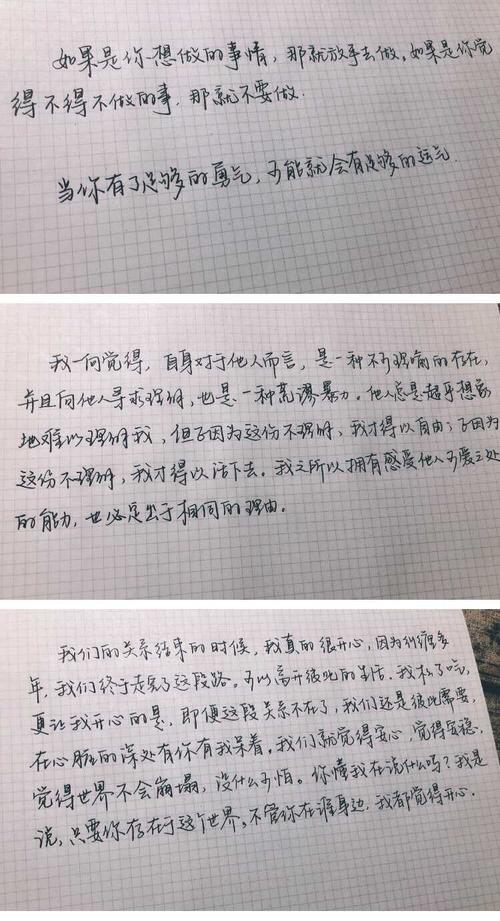 如果是你想做的事情，那就放手去做。如果是你觉
得不得不做的事，那就不要做.
当你有了足够的勇气，可能就会有足够的运气.
我一向觉得，自身对于他人而言，是一种不可理喻的存在，
并且向他人寻求理解，也是一种荒谬暴力。他人总是超乎想象
地难以理解我，但正因为这份不理解，我才得以自由；正因为
这份不理解，我才得以活下去。我之所以拥有感受他人可爱之处
的能力，也必定出于相同的理由。
我们的关系结束的时候，我真的很开心，因为纠缠多
年，我们终于走完了这段路。可以离开彼此的生活，我松了口气，
更让我开心的是，即便这段关系不在了，我们还是彼此需要，
在心脏的深处有你有我呆着。我们就觉得安心，觉得安稳，
觉得世界不会崩塌，没什么可怕。你懂我在说什么吗？我是
说，只要你存在于这个世界，不管你在谁身边，我都觉得开心.